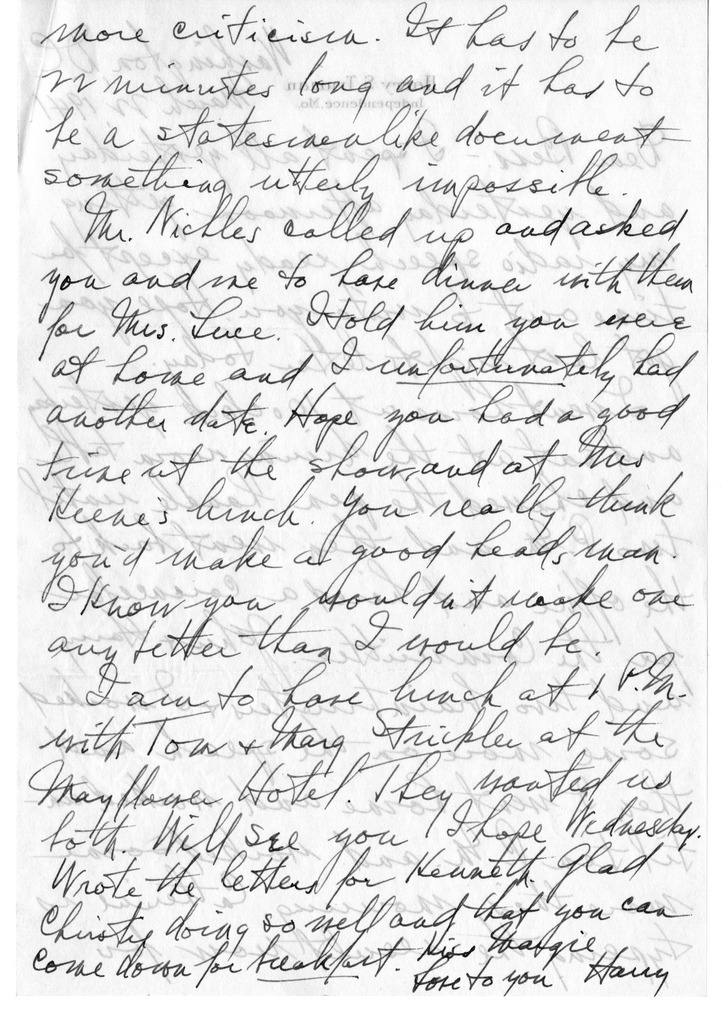 more criticism. It has to be
22 minutes long and it has to
be a statesmenlike document
something utterly impossible.
Mr. Nichles called up and asked
you and me to have dinner with them
for Mrs. Luce. I told him you were
at home and I unfortunately had
another date. Hope you had a good
time at the show, and at Mrs
Keene's lunch. You really think
you'd make a good heads man.
I know you wouldn't make one
any better than I would be.
I am to have lunch at 1 P.M.
with Tom & Marg Strickler at the
Mayflower Hotel. They wanted us
both. Will see you I hope Wednesday.
Wrote the letters for Kenneth. Glad
Christy doing so well and that you can
come down for breakfast. Kiss Margie
Love to you Harry
Harry S. Truman
Independence, Mo.